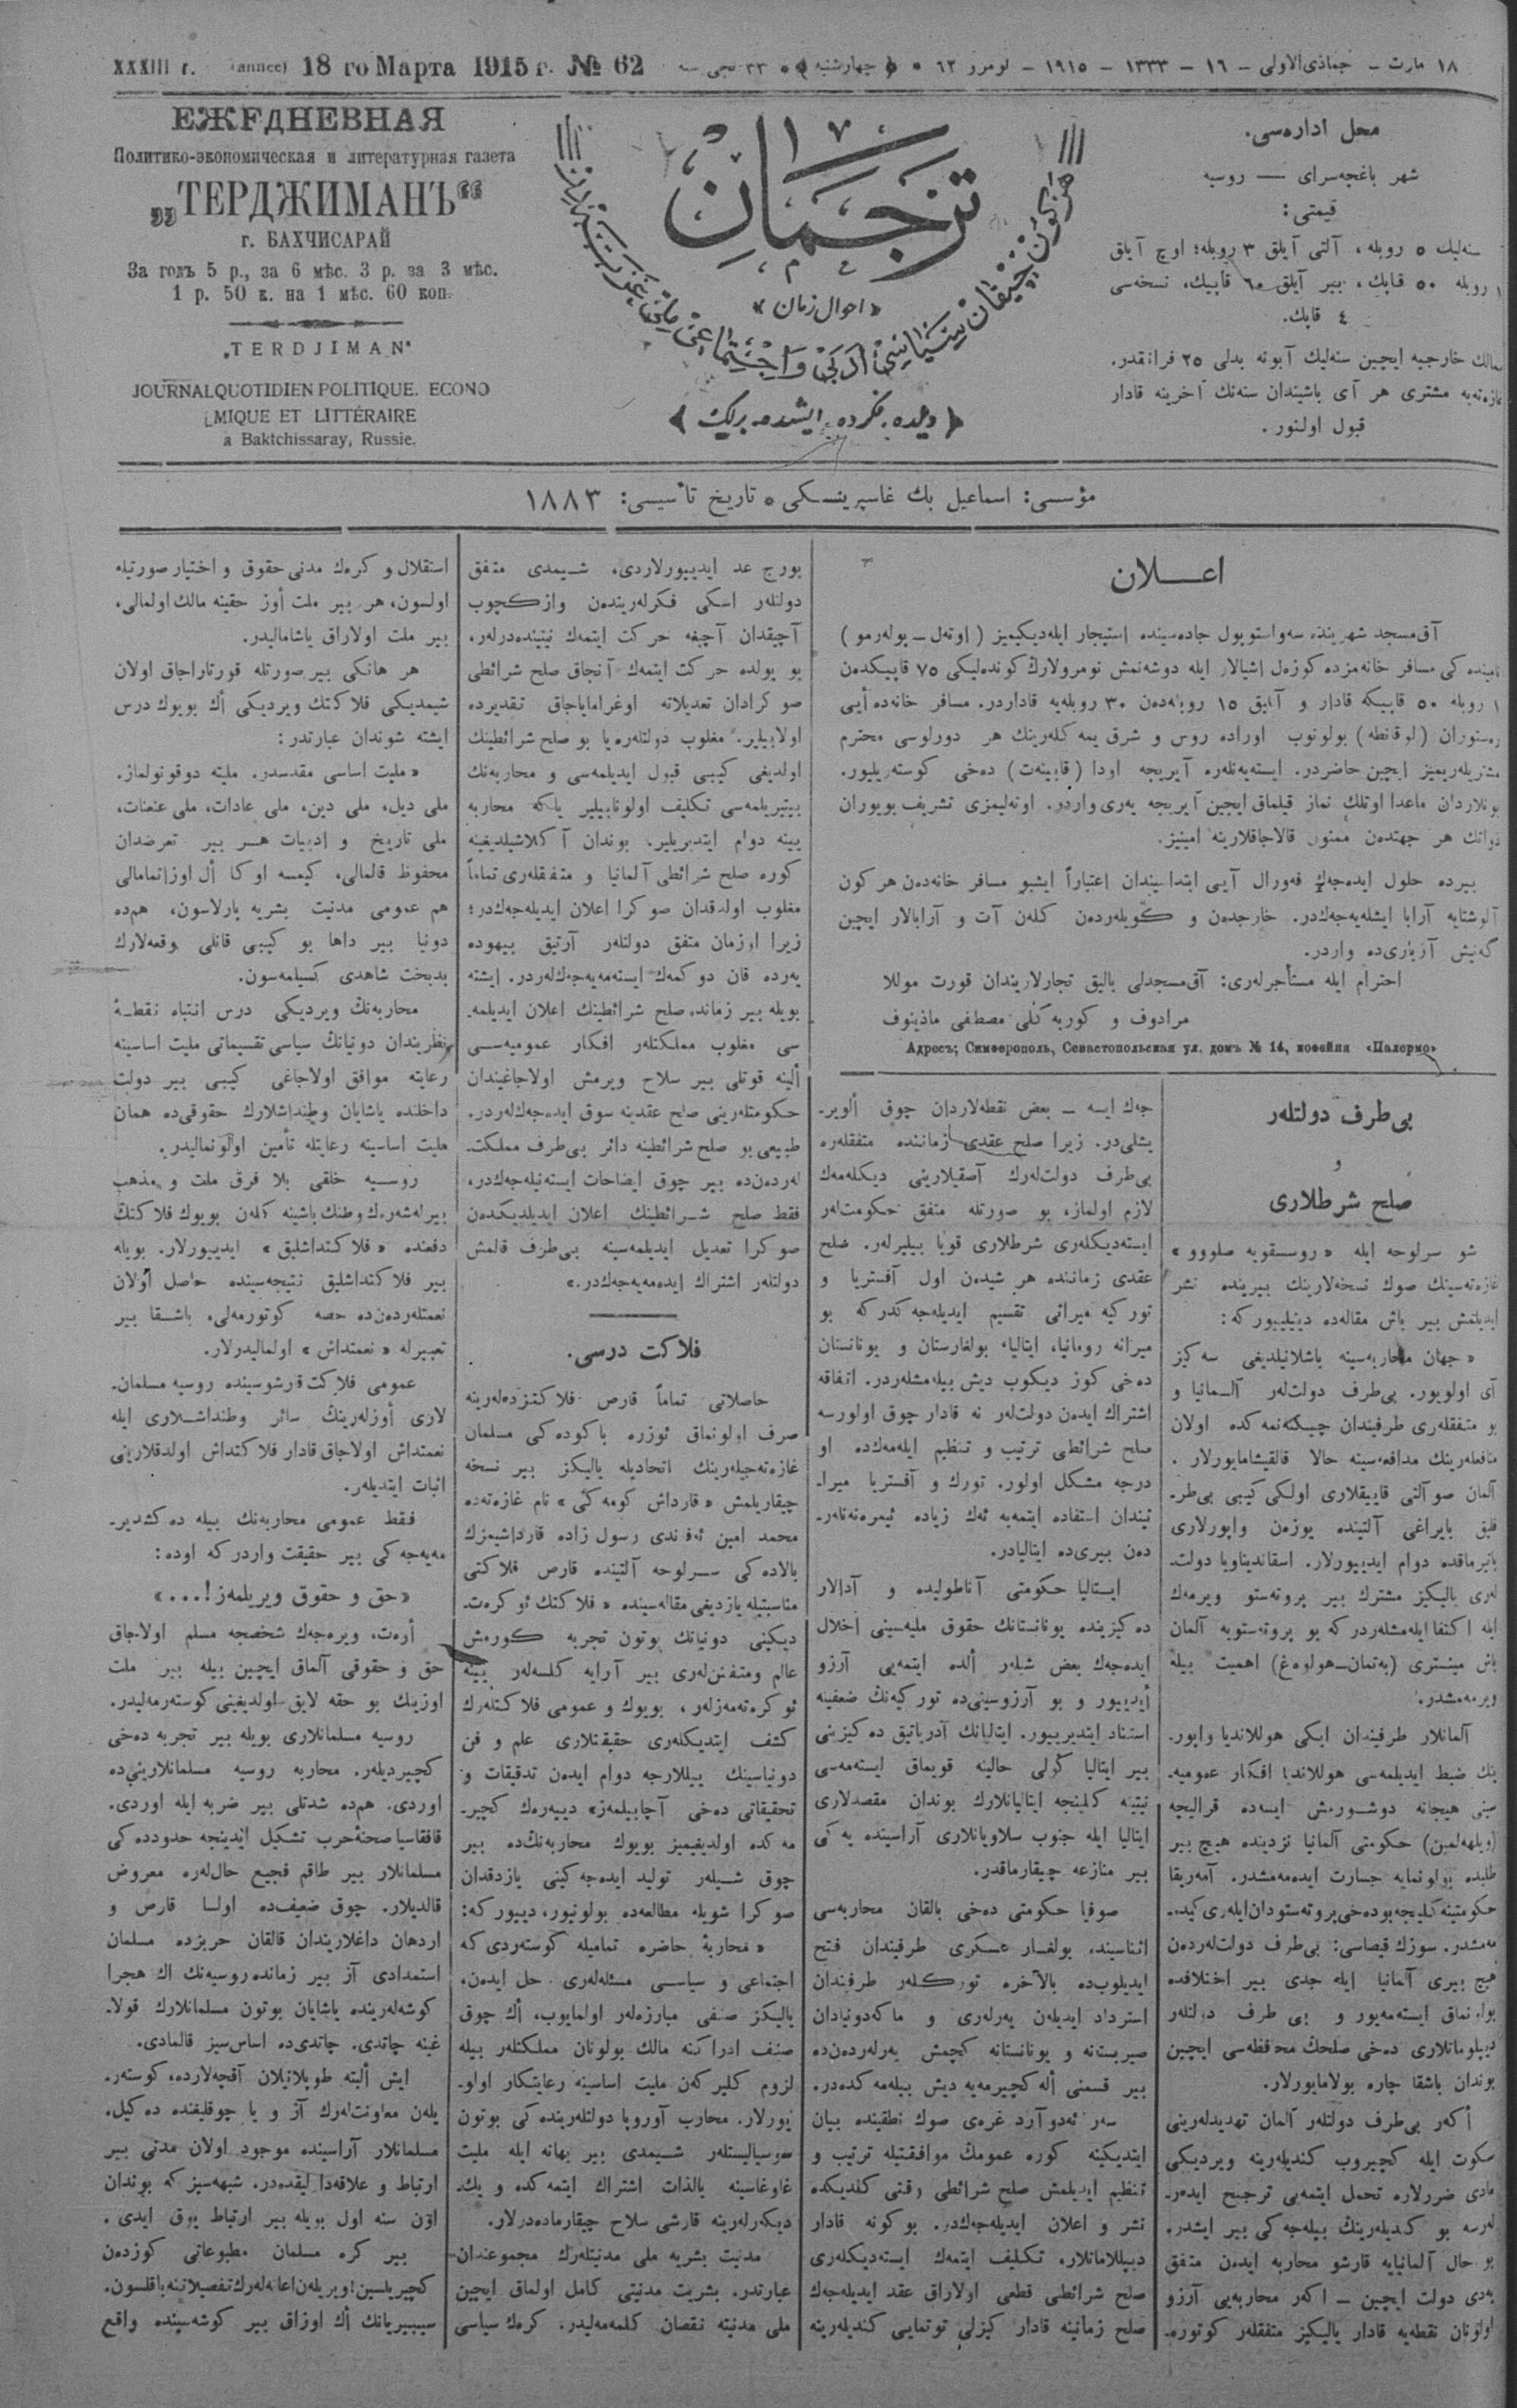 XXXIII г. (annee) 18 го Марта 1915 г. № 62
١٨ مارت – جماذی‌الاولی – ١٦ – ١٣٣٣ – ١٩١٥ – لومرو ٦٢ • ﴿ چهارشنبه ﴾ • ٣٣ نجی سنه
ЕЖЕДНЕВНАЯ
Политико-экономическая и литературная газета
„ТЕРДЖИМАНЪ“
г. БАХЧИСАРАЙ
За годъ 5 р., за 6 мѣс. 3 р. за 3 мѣс.
1 р. 50 к. на 1 мѣс. 60 коп.
„TERDJIMAN“
JOURNAL QUOTIDIEN POLITIQUE. ECONO
MIQUE ET LITTÉRAIRE
a Baktchissaray, Russie.
ترجمان
﴿ احوال زمان ﴾
﴿ دیلده، فكرده، ایشده بریك ﴾
محل اداره‌سی.
شهر باغچه‌سرای — روسیه
قیمتی:
سنه‌لیك ٥ روبله، آلتی آیلق ٣ روبله؛ اوچ آیلق
١ روبله ٥٠ قاپك، بیر آیلق ٦٠ قاپیك، نسخه‌سی
٤ قاپك.
ممالك خارجیه ایچین سنه‌لیك آبونه بدلی ٢٥ فرانقدر.
غازه‌ته‌یه مشتری هر آی باشیندان سنه‌نك آخرینه قادار
قبول اولنور.
مؤسسی: اسماعیل بك غاسپرینسكی • تاریخ تأسیسی: ١٨٨٣
اعـــلان
آق‌مسجد شهرینده سه‌واستوپول جاده‌سینده استیجار ایله‌دیكیمیز (اوتەل – پولەرمو)
نامینده كی مسافر خانه‌مزده كوزەل اشیالار ایله دوشه‌نمش نومرولارڭ كونده‌لیكی ٧٥ قاپیكدەن
١ روبله ٥٠ قاپیكه قادار و آیلیق ١٥ روبله‌دەن ٣٠ روبله‌یه قاداردر. مسافر خانه‌ده أیی
رەستوران (لوقانطه) بولونوب اوراده روس و شرق یمه كله‌رینك هر دورلوسی محترم
مشتریله‌ریمیز ایچین حاضردر. ایسته‌یه‌نله‌ره آیریجه اودا (قابینەت) دەخی كوسته‌ریلیور.
بونلاردان ماعدا اوتلك نماز قیلماق ایچین آیریجه یه‌ری واردر. اوتەلیمزی تشریف بویوران
ذواتك هر جهتدەن ممنون قالاجاقلارینه امینیز.
بیرده حلول ایده‌جه‌ك فه‌ورال آیی ابتداسیندان اعتباراً ایشبو مسافر خانه‌دەن هر كون
آلوشتایه آرابا ایشله‌یه‌جه‌كدر. خارجدەن و كویله‌ردەن كلەن آت و آرابالار ایچین
گەنیش آزباری‌ده واردر.
احترام ایله مستأجرله‌ری: آق‌مسجدلی بالیق تجارلاریندان قورت موللا
مرادوف و كوریه كلی مصطفی ماذینوف
Адресъ; Симферополь, Севастопольская ул. домъ № 14, кофейня «Палермо»
بی‌طرف دولتله‌ر
و
صلح شرطلاری
شو سرلوحه ایله «روسسقویه صلووو»
غازه‌ته‌سینك صوك نسخه‌لارینك بیرینده نشر
ایدیلمش بیر باش مقاله‌ده دینیلییور كه:
«جهان محاربه‌سینه باشلانیلدیغی سه‌كیز
آی اولویور. بی‌طرف دولتله‌ر آلـمانیا و
بو متفقله‌ری طرفیندان چیكنه‌نمه كده اولان
منافعله‌رینك مدافعه‌سینه حالا قالقیشمایورلار.
آلمان صو آلتی قاییقلاری اولكی كیبی بی‌طر-
فلیق بایراغی آلتینده یوزەن واپورلاری
باتیرماقده دوام ایدییورلار. اسقاندیناویا دولت-
له‌ری یالیكیز مشترك بیر پروته‌ستو ویرمه‌ك
ایله اكتفا ایله‌مشله‌ردر كه بو پروته‌ستویه آلمان
باش مینستری (به‌تمان – هولوەغ) اهمیت بیله
ویرمه‌مشدر.
آلمانلار طرفیندان ایكی هوللاندیا واپور-
ینك ضبط ایدیلمه‌سی هوللاندیا افكار عمومیه-
سینی هیجانه دوشـورمش ایسه‌ده قرالیچه
(ویلهه‌لمین) حكومتی آلمانیا نزدینده هیچ بیر
طلبده بولونمایه جسارت ایده‌مه‌مشدر. آمه‌ریقا
حكومتینه كلینجه بو ده‌خی پروته‌ستودان ایله‌ری كیده-
مه‌مشدر. سوزك قیصاسی: بی‌طرف دولت‌له‌ردەن
هیچ بیری آلمانیا ایله جدی بیر اختلافده
بولونماق ایسته‌مه‌یور و بی طرف دولتله‌ر
دیپلوماتلاری ده‌خی صلحڭ محافظه‌سی ایچین
بوندان باشقا چاره بولامایورلار.
أكەر بی‌طرف دولتله‌ر آلمان تهدیدله‌رینی
سكوت ایله كچیروب كندیله‌رینه ویردیكی
مادی ضررلاره تحمل ایتمه‌یی ترجیح ایده‌ر-
له‌رسه بو كندیله‌رینك بیله‌جه كی بیر ایشدر.
بو حال آلمانیایه قارشو محاربه ایدەن متفق
یەدی دولت ایچین – اكەر محاربه‌یی آرزو
اولونان نقطه‌یه قادار یالیكیز متفقله‌ر كوتوره-
جه‌ك ایسه – بعض نقطه‌لاردان چوق ألویر-
یشلی‌در. زیرا صلح عقدی زماننده متفقله‌ره
بی‌طرف دولت‌له‌رك آصقیلارینی دیكله‌مه‌ك
لازم اولماز، بو صورتله متفق حكومت‌له‌ر
ایسته‌دیكله‌ری شرطلاری قویا بیلیرله‌ر. صلح
عقدی زماننده هر شیدەن اول آفستریا و
توركیه میراثی تقسیم ایدیله‌جه‌كدر كه بو
میراثه رومانیا، ایتالیا، بولغارستان و یونانستان
ده‌خی كوز دیكوب دیش بیله‌مشله‌ردر. اتفاقه
اشتراك ایدەن دولت‌له‌ر نه قادار چوق اولورسه
صلح شرائطی ترتیب و تنظیم ایله‌مه‌كده او
درجه مشكل اولور. تورك و آفستریا میرا-
ثیندان استفاده ایتمه‌یه ئەڭ زیاده ئیمره‌نه‌نله‌ر-
دەن بیری‌ده ایتالیادر.
ایـتالیا حكومتی آناطولیده و آدالار
ده‌كیزینده یونانستانك حقوق ملیه‌سینی اخلال
ایده‌جه‌ك بعض شیله‌ر ألده ایتمه‌یی آرزو
أیدییور و بو آرزوسینی‌ده توركیه‌نڭ ضعفینه
استناد ایتدیرییور. ایتالیانك آدریاتیق ده‌كیزینی
بیر ایتالیا كولی حالینه قویماق ایسته‌مه‌سی
نیتینه كلینجه ایتالیانلارك بوندان مقصدلاری
ایتالیا ایله جنوب سلاویانلاری آراسینده یه كی
بیر منازعه چیقارماقدر.
صوفیا حكومتی ده‌خی بالقان محاربه‌سی
اثناسینده بولغـار عسكری طرفیندان فتح
ایدیلوب‌ده بالآخره توركـله‌ر طرفیندان
استرداد ایدیلەن یه‌رله‌ری و ماكه‌دونیادان
صیربستانه و یونانستانه كچمش یه‌رله‌ردەن‌ده
بیر قسمنی أله كچیرمه‌یه دیش بیله‌مه كده‌در.
سه‌ر ئه‌دوآرد غرەی صوك نطقینده بیان
ایتدیكینه كوره عمومڭ موافقتیله ترتیب و
تنظیم ایدیلمش صلح شرائطی وقتی كلدیكده
نشر و اعلان ایدیله‌جه‌كدر. بو كونه قادار
دیپللاماتلار، تكلیف ایتمه‌ك ایسته‌دیكله‌ری
صلح شرائطی قطعی اولاراق عقد ایدیله‌جه‌ك
صلح زمانینه قادار كیزلی توتمایی كندیله‌رینه
بورج عد ایدییورلاردی، شـیمدی متفق
دولتله‌ر اسكی فكرله‌ریندەن وازكچوب
آچیقدان آچیغه حركت ایتمه‌ك نیتینده‌درله‌ر،
بو یولده حركت ایتمه‌ك آنجاق صلح شرائطی
صوكرادان تعدیلاته اوغرامایاجاق تقدیرده
اولابیلیر. مغلوب دولتله‌ره یا بو صلح شرائطینك
اولدیغی كیبی قبول ایدیلمه‌سی و محاربه‌نك
بیتیریلمه‌سی تكلیف اولونابیلیر یاكه محاربه
یینه دوام ایتدیریلیر. بوندان آكلاشیلدیغینه
كوره صلح شرائطی آلمانیا و متفقله‌ری تماماً
مغلوب اولدقدان صوكرا اعلان ایدیله‌جه‌كدر؛
زیرا اوزمان متفق دولتله‌ر آرتیق بیهوده
یه‌رده قان دوكمه‌ك ایسته‌مه‌یه‌جه‌كله‌ردر. ایشته
بویله بیر زمانده صلح شرائطینك اعلان ایدیلمه-
سی مغلوب مملكتله‌ر افكار عمومیه‌سـی
ألینه قوتلی بیر سلاح ویرمش اولاجاغیندان
حكومتله‌رینی صلح عقدینه سوق ایده‌جه‌كله‌ردر.
طبیعی بو صلح شرائطینه دائر بی‌طرف مملكت-
له‌ردەن‌ده بیر چوق ایضاحات ایسته‌نیله‌جه‌كدر،
فقط صلح شـرائطینك اعلان ایدیلدیكدەن
صوكرا تعدیل ایدیلمه‌سینه بی‌طرف قالمش
دولتله‌ر اشتراك ایده‌مه‌یه‌جه‌كدر.»
فلاكت درسی.
حاصلاتی تماماً قارص فلاكتزده‌له‌رینه
صرف اولونماق ئوزره باكوده كی مسلمان
غازه‌ته‌جیله‌رینك اتحادیله یالیكز بیر نسخه
چیقاریلمش «قارداش كومه كی» نام غازه‌ته‌ده
محمد امین ئه‌فندی رسول زاده قارداشیمزك
بالاده كی سـرلوحه آلتینده قارص فلاكتی
مناسبتیله یازدیغی مقاله‌سینده «فلاكتك ئوكره‌ت-
دیكینی دونیانك بوتون تجربه كورمش
عالم ومتفنن‌له‌ری بیر آرایه كلسه‌له‌ر یینه
ئوكره‌ته‌مه‌زله‌ر، بویوك و عمومی فلاكتله‌رك
كشف ایتدیكله‌ری حقیقتلاری علم و فن
دونیاسینك ییللارجه دوام ایدەن تدقیقات و
تحقیقاتی ده‌خی آچابیلمه‌ز» دییه‌ره‌ك كچیر-
مه كده اولدیغیمیز بویوك محاربه‌نڭ‌ده بیر
چوق شـیله‌ر تولید ایده‌جه كینی یازدقدان
صوكرا شویله مطالعه‌ده بولونیور، دییور كه:
«محاربۀ حاضره تمامیله كوسته‌ردی كه
اجتماعی و سیاسـی مسئله‌له‌ری حل ایدەن،
یالیكز صنفی مبارزه‌له‌ر اولمایوب، أك چوق
صنف ادراكنه مالك بولونان مملكتله‌ر بیله
لزوم كلیركەن ملیت اساسینه رعایتكار اولو-
یورلار. محارب آوروپا دولتله‌رینده كی بوتون
سوسیالیستله‌ر شـیمدی بیر بهانه ایله ملیت
غاوغاسینه بالذات اشتراك ایتمه كده و یك-
دیكه‌رله‌رینه قارشی سلاح چیقارماده‌درلار.
مدنیت بشریه ملی مدنیتله‌رك مجموعندان
عبارتدر. بشریت مدنیتی كامل اولماق ایچین
ملی مدنیته نقصان كلمه‌مه‌لیدر. كره‌ك سیاسی
استقلال و كره‌ك مدنی حقوق و اختیار صورتیله
اولسون، هر بیر ملت أوز حقینه مالك اولمالی،
بیر ملت اولاراق یاشامالیدر.
هر هانكی بیر صورتله قورتاراجاق اولان
شیمدیكی فلاكتك ویردیكی أك بویوك درس
ایشته شوندان عبارتدر:
«ملیت اساسی مقدسدر. ملیته دوقونولماز.
ملی دیل، ملی دین، ملی عادات، ملی عنعنات،
ملی تاریخ و ادبیات هــر بیر تعرضدان
محفوظ قالمالی، كیمسه اوكا أل اوزاتمامالی
هم عمومی مدنیت بشریه یارلاسون، هم‌ده
دونیا بیر داها بو كیبی قانلی وقعه‌لارك
بدبخت شاهدی كسیلمه‌سون.
محاربه‌نڭ ویردیكی درس انتباه نقطـۀ
نظریندان دونیانڭ سیاسی تقسیماتی ملیت اساسینه
رعایته موافق اولاجاغی كیبی بیر دولت
داخلنده یاشایان وطنداشلارك حقوقی‌ده همان
ملیت اساسینه رعایتله تأمین اولونمالیدر.
روسـیه خلقی بلا فرق ملت و مذهب
بیرله‌شه‌ره‌ك وطنك باشینه كلەن بویوك فلاكتڭ
دفعنده «فلاكتداشلیق» ایدییورلار. بویله
بیر فلاكتداشلیق نتیجه‌سینده حاصل اولان
نعمتله‌ردەن‌ده حصه كوتورمه‌لی، باشــقا بیر
تعبیرله «نعمتداش» اولمالیدرلار.
عمومی فلاكت قارشوسینده روسیه مسلمان-
لاری أوزله‌رینڭ سائر وطنداشـلاری ایله
نعمتداش اولاجاق قادار فلاكتداش اولدقلارینی
اثبات ایتدیله‌ر.
فـقط عمومی محاربه‌نك بیله ده كشدیر-
مه‌یه‌جه كی بیر حقیقت واردر كه اوده:
«حق و حقوق ویریلمه‌ز!...»
أره‌ت، ویره‌جه‌ك شخصجه مسلم اولاجاق
حق و حقوقی آلماق ایچین بیله بیر ملت
اوزینك بو حقه لایق اولدیغینی كوسته‌رمه‌لیدر.
روسیه مسلمانلاری بویله بیر تجربه ده‌خی
كچیردیله‌ر. محاربه روسیه مسلمانلارینی‌ده
اوردی. هم‌ده شدتلی بیر ضربه ایله اوردی.
قافقاسیا صحنۀحرب تشكیل ایدینجه حدودده كی
مسلمانلار بیر طاقم فجیع حال‌له‌ره معروض
قالدیلار. چوق ضعیف‌ده اولسا قارص و
اردهان داغلاریندان قالقان حربزده مسلمان
استمدادی آز بیر زمانده روسیه‌نك اك هجرا
كوشه‌له‌رینده یاشایان بوتون مسلمانلارك قولا-
غینه چاتدی. چاتدی‌ده اساس‌سیز قالمادی.
ایش ألبته طوپلانیلان آقچه‌لارده، كوسته‌ر-
یلەن معاونت‌له‌رك آز و یا چوقلیغنده ده‌كیل.
مسلمانلار آراسینده موجود اولان مدنی بیر
ارتباط و علاقه‌دارلیقده‌در. شبهه‌سیز كه بوندان
اؤن سنه اول بویله بیر ارتباط یوق ایدی.
بیر كره مسلمان مطبوعاتی كوزدەن
كچیریلسین! ویریلەن اعانه‌له‌رك تفصیلاتنه باقلسون.
سیبیریانك أك اوزاق بیر كوشه‌سینده واقع